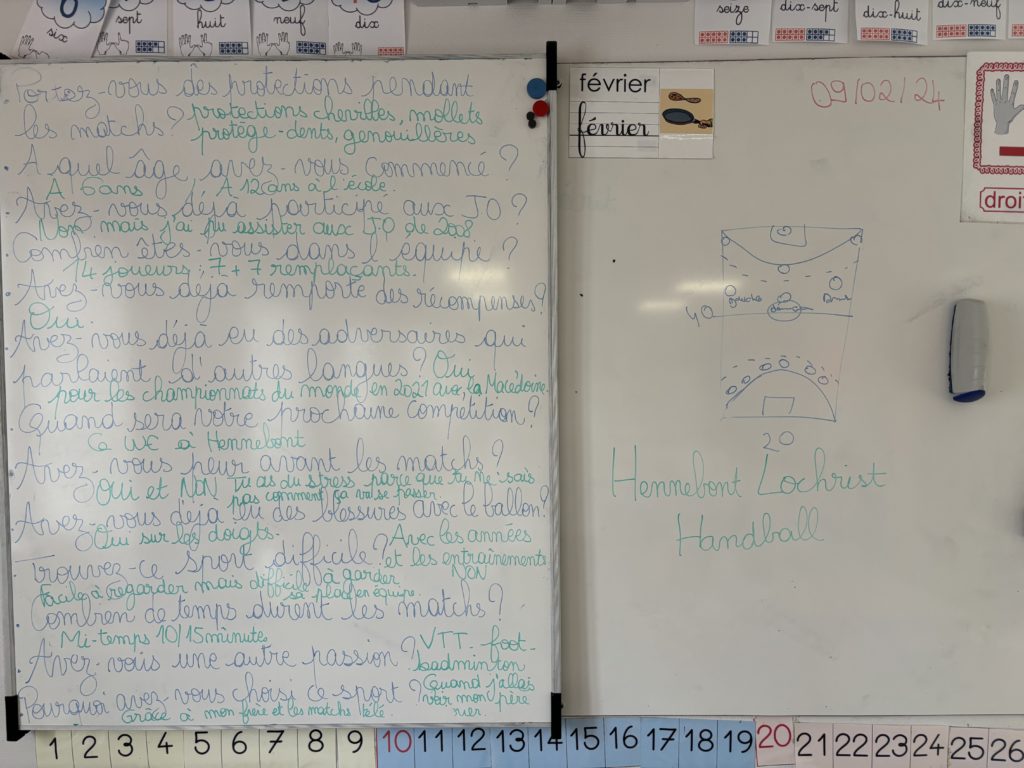 six
sept
huit
neuf
dix
seize
dix-sept
dix-huit
dix-neuf
Portez-vous des protections pendant
les matchs ? protections chevilles, mollets
protège-dents, genouillères
A quel âge avez-vous commencé ?
A 6 ans / A 12 ans à l'école.
Avez-vous déjà participé aux JO ?
Non mais j'ai pu assister aux J.O de 2008
Combien êtes-vous dans l'équipe ?
14 joueurs : 7 + 7 remplaçants.
Avez-vous déjà remporté des récompenses ?
Oui
Avez-vous déjà eu des adversaires qui
parlaient d'autres langues ? Oui
pour les championnats du monde en 2021 avec la Macédoine.
Quand sera votre prochaine compétition ?
Ce WE à Hennebont
Avez-vous peur avant les matchs ?
Oui et NON Tu as du stress parce que tu ne sais
pas comment ça va se passer.
Avez-vous déjà eu des blessures avec le ballon ?
Oui sur les doigts.
Trouvez-ce sport difficile ? Avec les années
et les entraînements
NON
facile à regarder mais difficile à garder
sa place en équipe.
Combien de temps durent les matchs ?
Mi-temps 10/15 minutes
Avez-vous une autre passion ? VTT - foot -
badminton
Pourquoi avez-vous choisi ce sport ? Quand j'allais
voir mon frère
Grâce à mon frère et les matchs télé.
février
février
09/02/24
droit
gauche
40
20
Hennebont Lochrist
Handball
1 2 3 4 5 6 7 8 9 10 11 12 13 14 15 16 17 18 19 20 21 22 23 24 25 26